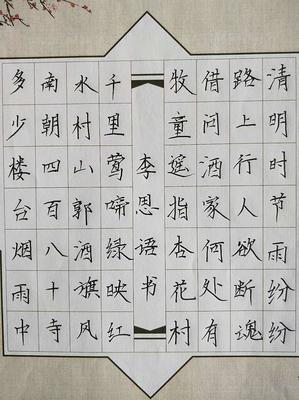 清明时节雨纷纷
路上行人欲断魂
借问酒家何处有
牧童遥指杏花村
李恩语书
千里莺啼绿映红
水村山郭酒旗风
南朝四百八十寺
多少楼台烟雨中